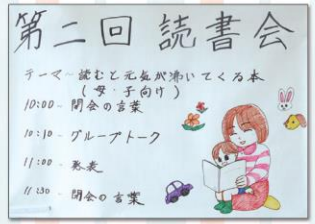 第二回 読書会
テーマ〜読むと元気が沸いてくる本
(母・子向け)
10:00- 開会の言葉
10:10- グループトーク
11:00- 発表
11:30- 閉会の言葉